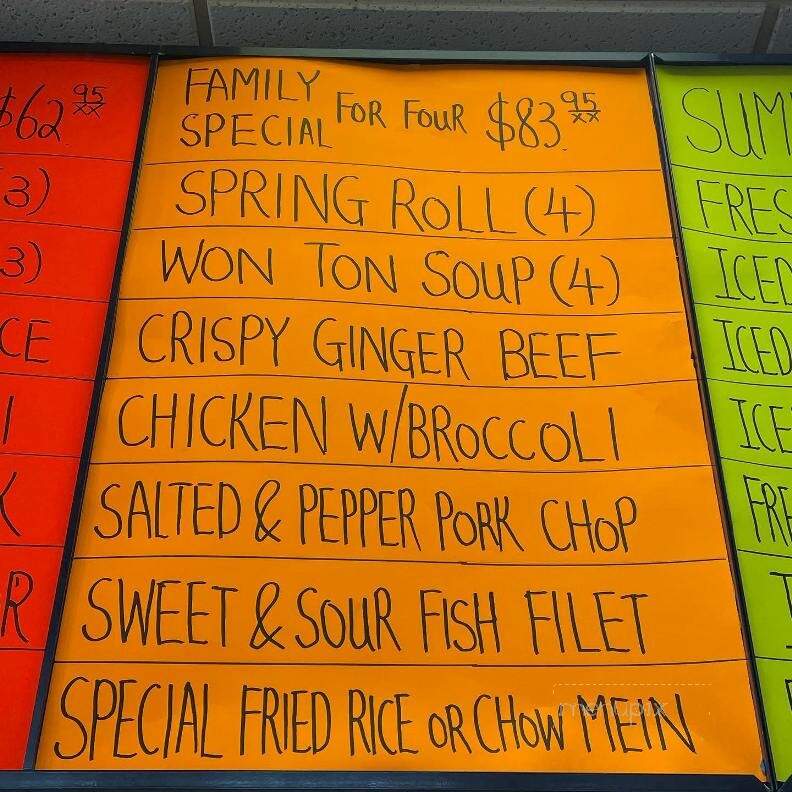 $62 95 xx
3)
3)
CE
I
K
R
FAMILY SPECIAL FOR FOUR $83. 95 xx
SPRING ROLL (4)
WON TON SOUP (4)
CRISPY GINGER BEEF
CHICKEN W/BROCCOLI
SALTED & PEPPER PORK CHOP
SWEET & SOUR FISH FILET
SPECIAL FRIED RICE OR CHOW MEIN
menupix
SUM
FRES
ICED
ICED
ICE
FRE